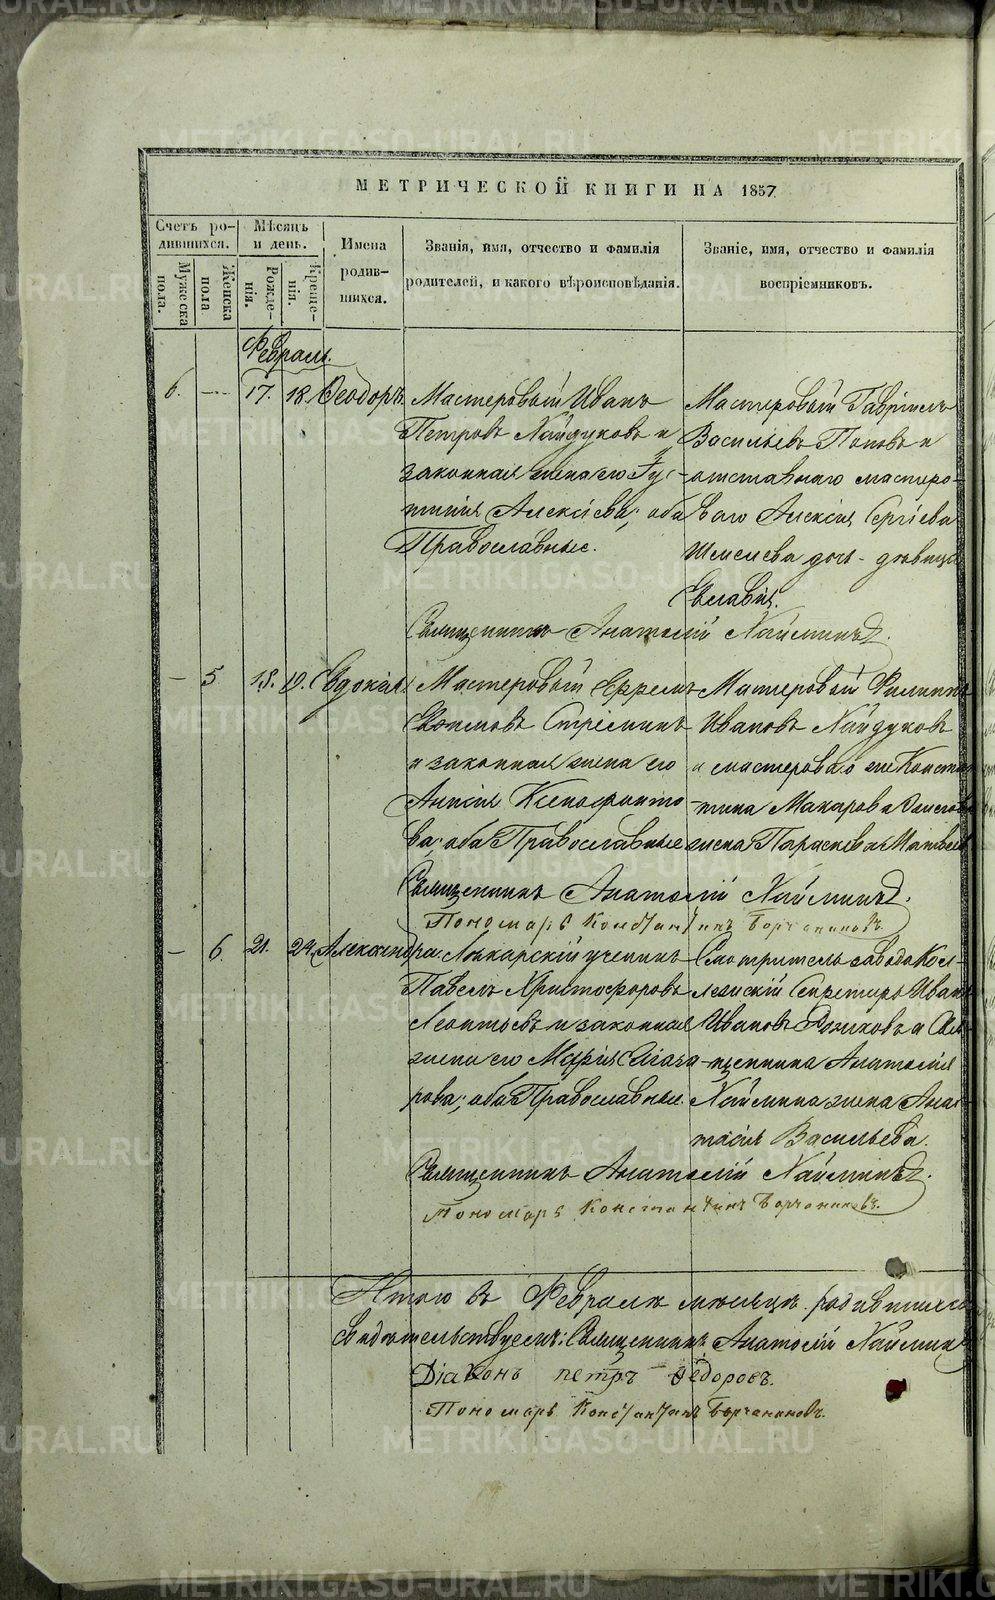 МЕТРИЧЕСКОЙ КНИГИ НА 1857
Счетъ ро-
дившихся.
Мужеска
пола.
Женска
пола
Мѣсяцъ
и день.
Рожде-
нія.
Креще-
нія.
Имена
родив-
шихся.
Званія, имя, отчество и фамилія
родителей, и какого вѣроисповѣданія.
Званіе, имя, отчество и фамилія
воспріемниковъ.
Февраль.
6. — 17. 18. Ѳеодоръ
Мастеровый Иванъ
Петровъ Найдуковъ и
законная жена его
Алексіева; оба
Православные.
Мастеровый Гавріилъ
Васильевъ Поповъ и
отставнаго мастеро-
ваго Алексія Сергіева
дочь - дѣвица
Священникъ Анатолій Наймин
— 5 18. 19. Евдокія
Мастеровый Ефремъ
и законная жена его
Анисія Ксенофонто
ва; оба Православные
Мастеровой Филиппъ
Ивановъ Найдуковъ
и мастероваго Конста
тина Макарова
жена Параскева Матвеев
Священникъ Анатолій Наймин
Пономарь Константинъ Борчаниновъ
— 6 21. 24. Александра
Лѣкарскій ученикъ
Павелъ Христофоровъ
Леонтьевъ и законная
жена его Марія
рова; оба Православные.
Смотритель завода Кол-
лежскій Секретарь Иван
Ивановъ и Свя-
щенника Анатолія
Наймина жена Анас-
тасія Васильева.
Священникъ Анатолій Наймин
Пономарь Константинъ Борчаниновъ.
Итого въ Февралѣ мѣсяцѣ родившихся
свидѣтельствуемъ: Священникъ Анатолій Наймин
Діаконъ петръ Ѳедоровъ.
Пономарь Константинъ Борчаниновъ.
METRIKI.GASO-URAL.RU